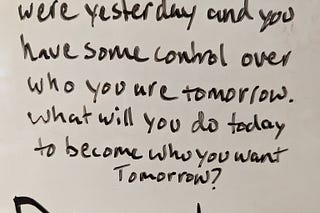 were yesterday and you
have some control over
who you are tomorrow.
What will you do today
to become who you want
Tomorrow?